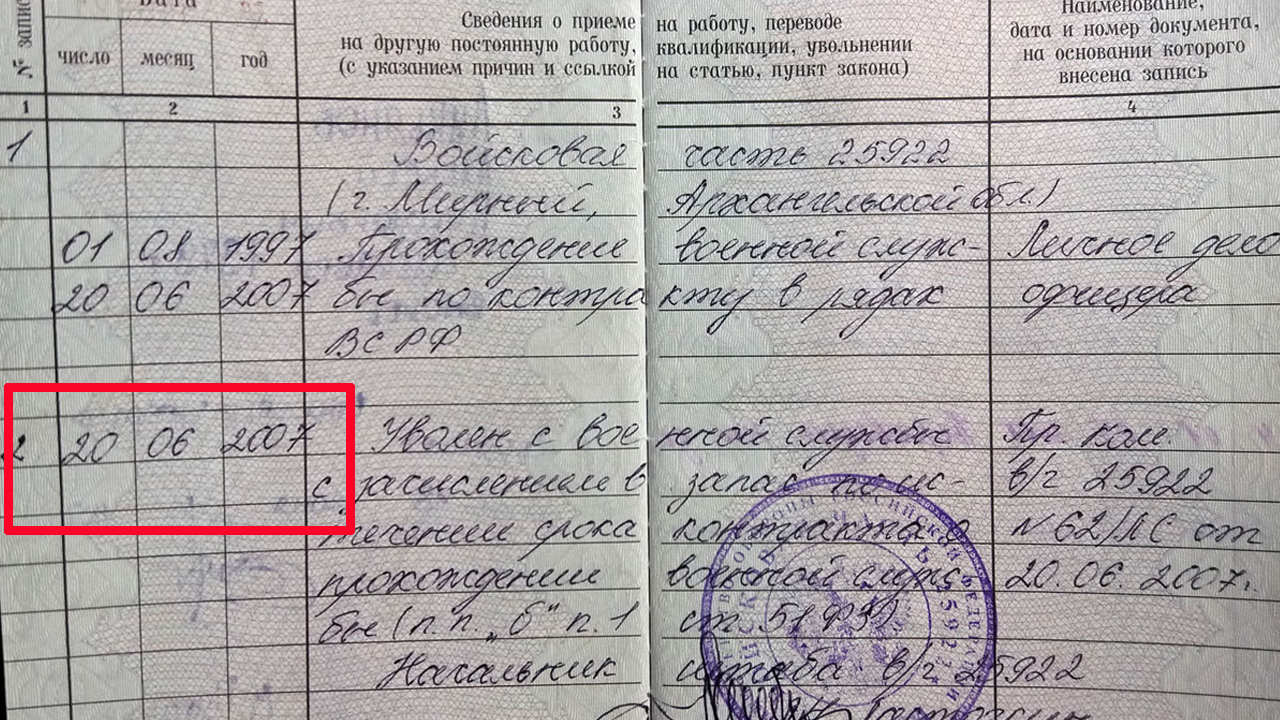 № запис
Дата
число месяц год
Сведения о приеме на работу, переводе
на другую постоянную работу, квалификации, увольнении
(с указанием причин и ссылкой на статью, пункт закона)
Наименование,
дата и номер документа,
на основании которого
внесена запись
1 2 3 4
1 Войсковая часть 25922
(г. Мирный, Архангельской обл.)
01 08 1997 Прохождение военной служ- Личное дело
20 06 2007 бы по контракту в рядах офицера
ВС РФ
2 20 06 2007 Уволен с военной службы Пр. ком.
с зачислением в запас по ис- в/ч 25922
течении срока контракта о №62/ЛС от
прохождении военной служ- 20.06.2007г.
бы (п.п. „б" п.1 ст. 51 ФЗ)
Начальник штаба в/ч 25922